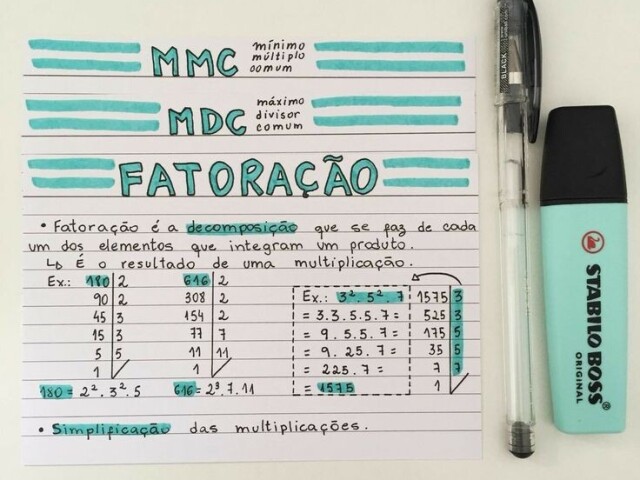 MMC mínimo
múltiplo
comum
MDC máximo
divisor
comum
FATORAÇÃO
• Fatoração é a decomposição que se faz de cada
um dos elementos que integram um produto.
↳ É o resultado de uma multiplicação.
Ex.: 180 | 2
90 | 2
45 | 3
15 | 3
5 | 5
1
180 = 2². 3². 5
616 | 2
308 | 2
154 | 2
77 | 7
11 | 11
1
616 = 2³. 7. 11
Ex.: 3². 5². 7
= 3.3.5.5.7 =
= 9. 5.5. 7 =
= 9. 25. 7 =
= 225. 7 =
= 1575
1575 | 3
525 | 3
175 | 5
35 | 5
7 | 7
1
• Simplificação das multiplicações.
BLACK
STABILO BOSS
ORIGINAL